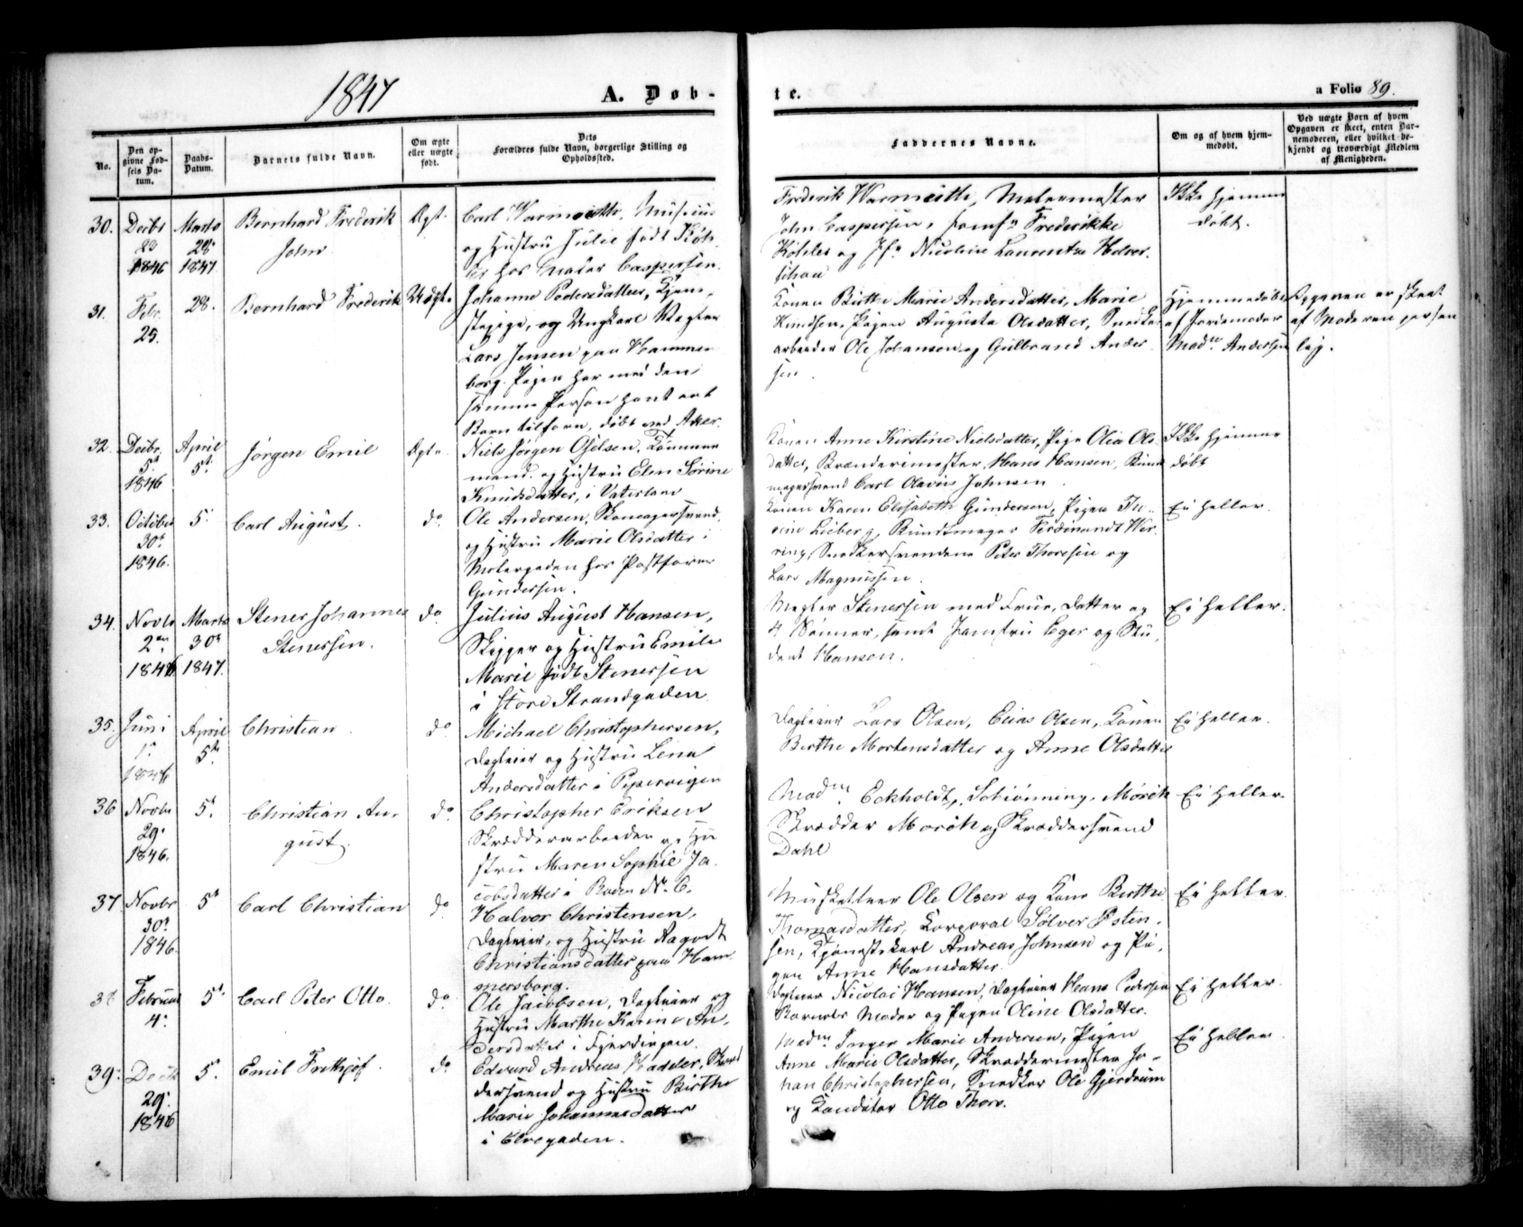 1847
A. Døb-
te.
a Folio 89.
No.
Den op-
givne Fød-
sels Da-
tum.
Daabs-
Datum.
Barnets fulde Navn.
Om ægte
eller uægte
født.
Dets
Forældres fulde Navn, borgerlige Stilling og
Opholdssted.
Faddernes Navne.
Om og af hvem hjem-
medøbt.
Ved uægte Børn af hvem
Opgaven er skeet, enten Bar-
nemoderen, eller hvilket be-
kjendt og troværdigt Medlem
af Menigheden.
30.
Decbr
28
1846
Marts
28
1847
Bernhard Frederik
John
Ægt.
Carl Warmuth,
og Hustru Julie født Köh-
ler hos Mader Caspersen.
Frederik Warmuth,
John Caspersen, Jomfr Frederikke
Köhler og Jfr Nicoline Laurentze
Ikke hjemme
døbt.
31.
Febr.
25.
28.
Bernhard Frederik
Uægte
Johanne Pedersdatter, Tjene-
stepige, og Ungkarl Vægter
Lars Jensen paa Hammer-
borg. Pigen har med den
samme Person havt eet
Barn tilforn, døbt ved Aker.
Konen Birthe Marie Andersdatter, Marie
Knudsen, Pigen Augusta Olsdatter, Snedker-
arbeider Ole Johansen og Gulbrand Ander-
sen.
Hjemmedøbt
af Jordemoder
Madm Andersen
Opgaven er skeet
af Moderen person-
lig.
32.
Decbr.
5t
1846
April
5t
Jørgen Emil
Ægte
Niels Jørgen Ojelsen, Tømmer
mand og Hustru Elen Sørine
Knudsdatter, i Vaterland
Konen Anne Kirstine Nielsdatter, Pige Olia Ols
datter, Brændermester Hans Hansen, Bund
magersvend Carl Olavus Johnsen
Ikke hjemme
døbt
33.
October
30t
1846.
5.
Carl August.
do
Ole Andersen, Skomagersvend,
og Hustru Marie Olsdatter i
Møllergaden hos Postfører
Gundersen.
Konen Karen Elisabeth Gundersen, Pigen
Lieberg, Buntmager Ferdinandt
Snedkersvendene Peter Thoresen og
Lars Magnussen.
Ei heller.
34.
Novbr
2en
1846
Marts
30t
1847.
Stener Johannes
Stenersen.
do
Julius August Hansen,
Skipper og Hustru Emilie
Marie født Stenersen
i store Strandgaden
Megler Stenersen med Frue, Datter og
4 Sønner, samt Jomfru Eger og Stu-
dent Hansen.
Ei heller.
35.
Juni
1.
1846
April
5te
Christian
do
Michael Christophersen,
Dagleier og Hustru Lena
Andersdatter i Pipervigen
Dagleier Lars Olsen, Elias Olsen, Konen
Berthe Mortensdatter og Anne Olsdatter
Ei heller.
36
Novbr
29.
1846.
5t
Christian Au-
gust.
do
Christopher Eriksen
Skrædderarbeider og Hu-
stru Maren Sophie Ja-
cobsdatter i No 6.
Madm Eckholdt, Mörch
Skrædder Morck og Skræddersvend
Dahl
Ei heller.
37
Novbr
30t
1846.
5t
Carl Christian
do
Halvor Christensen,
Dagleier, og Hustru Ragndt
Christiansdatter paa Ham-
mersborg.
Musketteer Ole Olsen og Kone Berthe
Thomasdatter, Korporal Sölver Østen-
sen, Tjenestekarl Andreas Johnsen og Pi-
gen Anne Hansdatter
Ei heller.
38
Februar
4.
5t
Carl Peter Otto.
do
Ole Jacobsen, Dagleier og
Hustru Marthe Karine An-
dersdatter i Fjerdingen.
Dagleier Nicolai Hansen, Dagleier Hans Pedersen
Barnets Moder og Pigen Oline Olsdatter.
Ei heller.
39.
Decbr
29.
1846
5.
Emil Frithjof.
do
Edvard Andreas Hadeler, Skræd
dersvend og Hustru Birthe
Marie Johannesdatter
i Elvegaden.
Madm Inger Marie Andersen, Pigen
Anne Marie Olsdatter, Skræddermester Jo-
han Christophersen, Snedker Ole Gjerdrum
og Konditor Otto Thors.
Ei heller